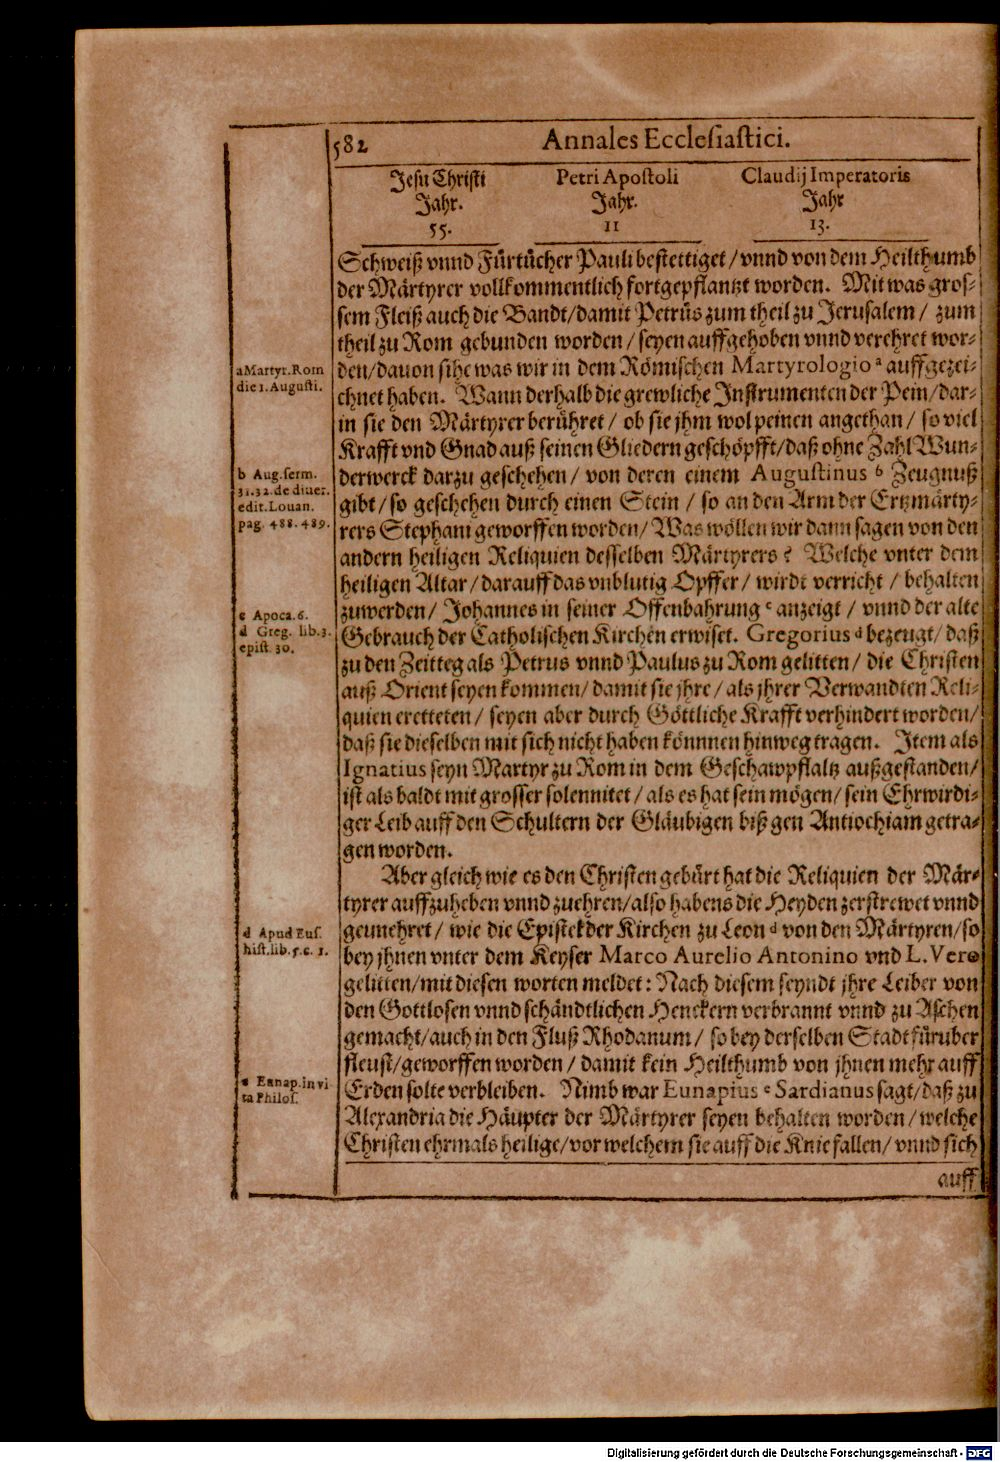 582
Annales Ecclesiastici.
Jesu Christi
Jahr.
55.
Petri Apostoli
Jahr.
11
Claudij Imperatoris
Jahr
13.
Schweiß vnnd Fürtücher Pauli bestettiget / vnnd von dem Heilthumb
der Märtyrer vollkommentlich fortgepflantzt worden. Mit was gros-
sem Fleiß auch die Bandt / damit Petrus zum theil zu Jerusalem / zum
theil zu Rom gebunden worden / seyen auffgehoben vnnd verehret wor-
den / dauon sihe was wir in dem Römischen Martyrologio a auffgezei-
chnet haben. Wann derhalb die grewliche Instrumenten der Pein / dar-
in sie den Märtyrer berühret / ob sie jhm wol peinen angethan / so viel
Krafft vnd Gnad auß seinen Gliedern geschöpfft / daß ohne Zahl Wun-
derwerck darzu geschehen / von deren einem Augustinus b Zeugnuß
gibt / so geschehen durch einen Stein / so an den Arm der Ertzmärty-
rers Stephani geworffen worden / Was wöllen wir dann sagen von den
andern heiligen Reliquien desselben Märtyrers? Welche vnter dem
heiligen Altar / darauff das vnblutig Opffer / wirdt verricht / behalten
zuwerden / Johannes in seiner Offenbahrung c anzeigt / vnnd der alte
Gebrauch der Catholischen Kirchen erwiset. Gregorius d bezeugt / daß
zu den Zeitteg als Petrus vnnd Paulus zu Rom gelitten / die Christen
auß Orient seyen kommen / damit sie jhre / als jhrer Verwandten Reli-
quien eretteten / seyen aber durch Göttliche Krafft verhindert worden /
daß sie dieselben mit sich nicht haben könnnen hinweg tragen. Item als
Ignatius seyn Martyr zu Rom in dem Geschawpflaltz außgestanden /
ist als baldt mit grosser solennitet / als es hat sein mögen / sein Ehrwirdi-
ger Leib auff den Schultern der Gläubigen biß gen Antiochiam getra-
gen worden.
Aber gleich wie es den Christen gebürt hat die Reliquien der Mär-
tyrer auffzuheben vnnd zuehren / also habens die Heyden zerstrewet vnnd
geunehret / wie die Epistel der Kirchen zu Leon d von den Märtyren / so
bey jhnen vnter dem Keyser Marco Aurelio Antonino vnd L. Vero
gelitten / mit diesen worten meldet: Nach diesem seyndt jhre Leiber von
den Gottlosen vnnd schändtlichen Henckern verbrannt vnnd zu Aschen
gemacht / auch in den Fluß Rhodanum / so bey derselben Stadt fürüber
fleust / geworffen worden / damit kein Heilthumb von jhnen mehr auff
Erden solte verbleiben. Nimb war Eunapius e Sardianus sagt / daß zu
Alexandria die Häupter der Märtyrer seyen behalten worden / welche
Christen ehrmals heilige / vor welchem sie auff die Knie fallen / vnnd sich
auff
a Martyr. Rom
die 1. Augusti.
b Aug. serm.
31. 32. de diuer.
edit. Louan.
pag. 488. 489.
c Apoca. 6.
d Greg. lib. 3.
epist. 30.
d Apud Eus.
hist. lib. 5. c. 1.
e Eunap. in vi
ta Philos.
Digitalisierung gefördert durch die Deutsche Forschungsgemeinschaft - DFG